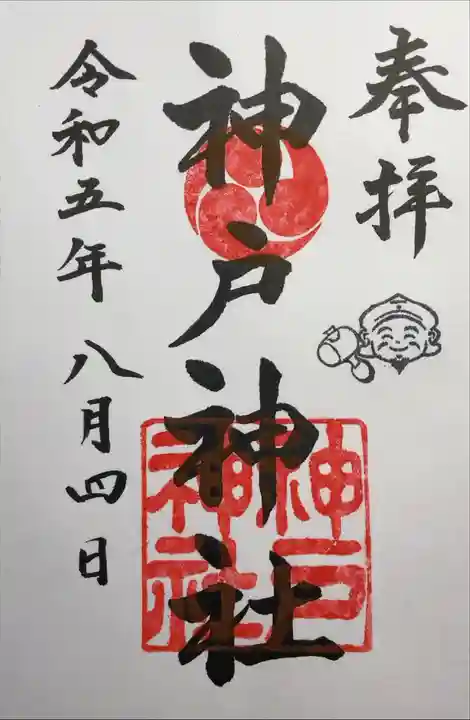 奉拝
神戸神社
神戸
神社
令和五年 八月四日